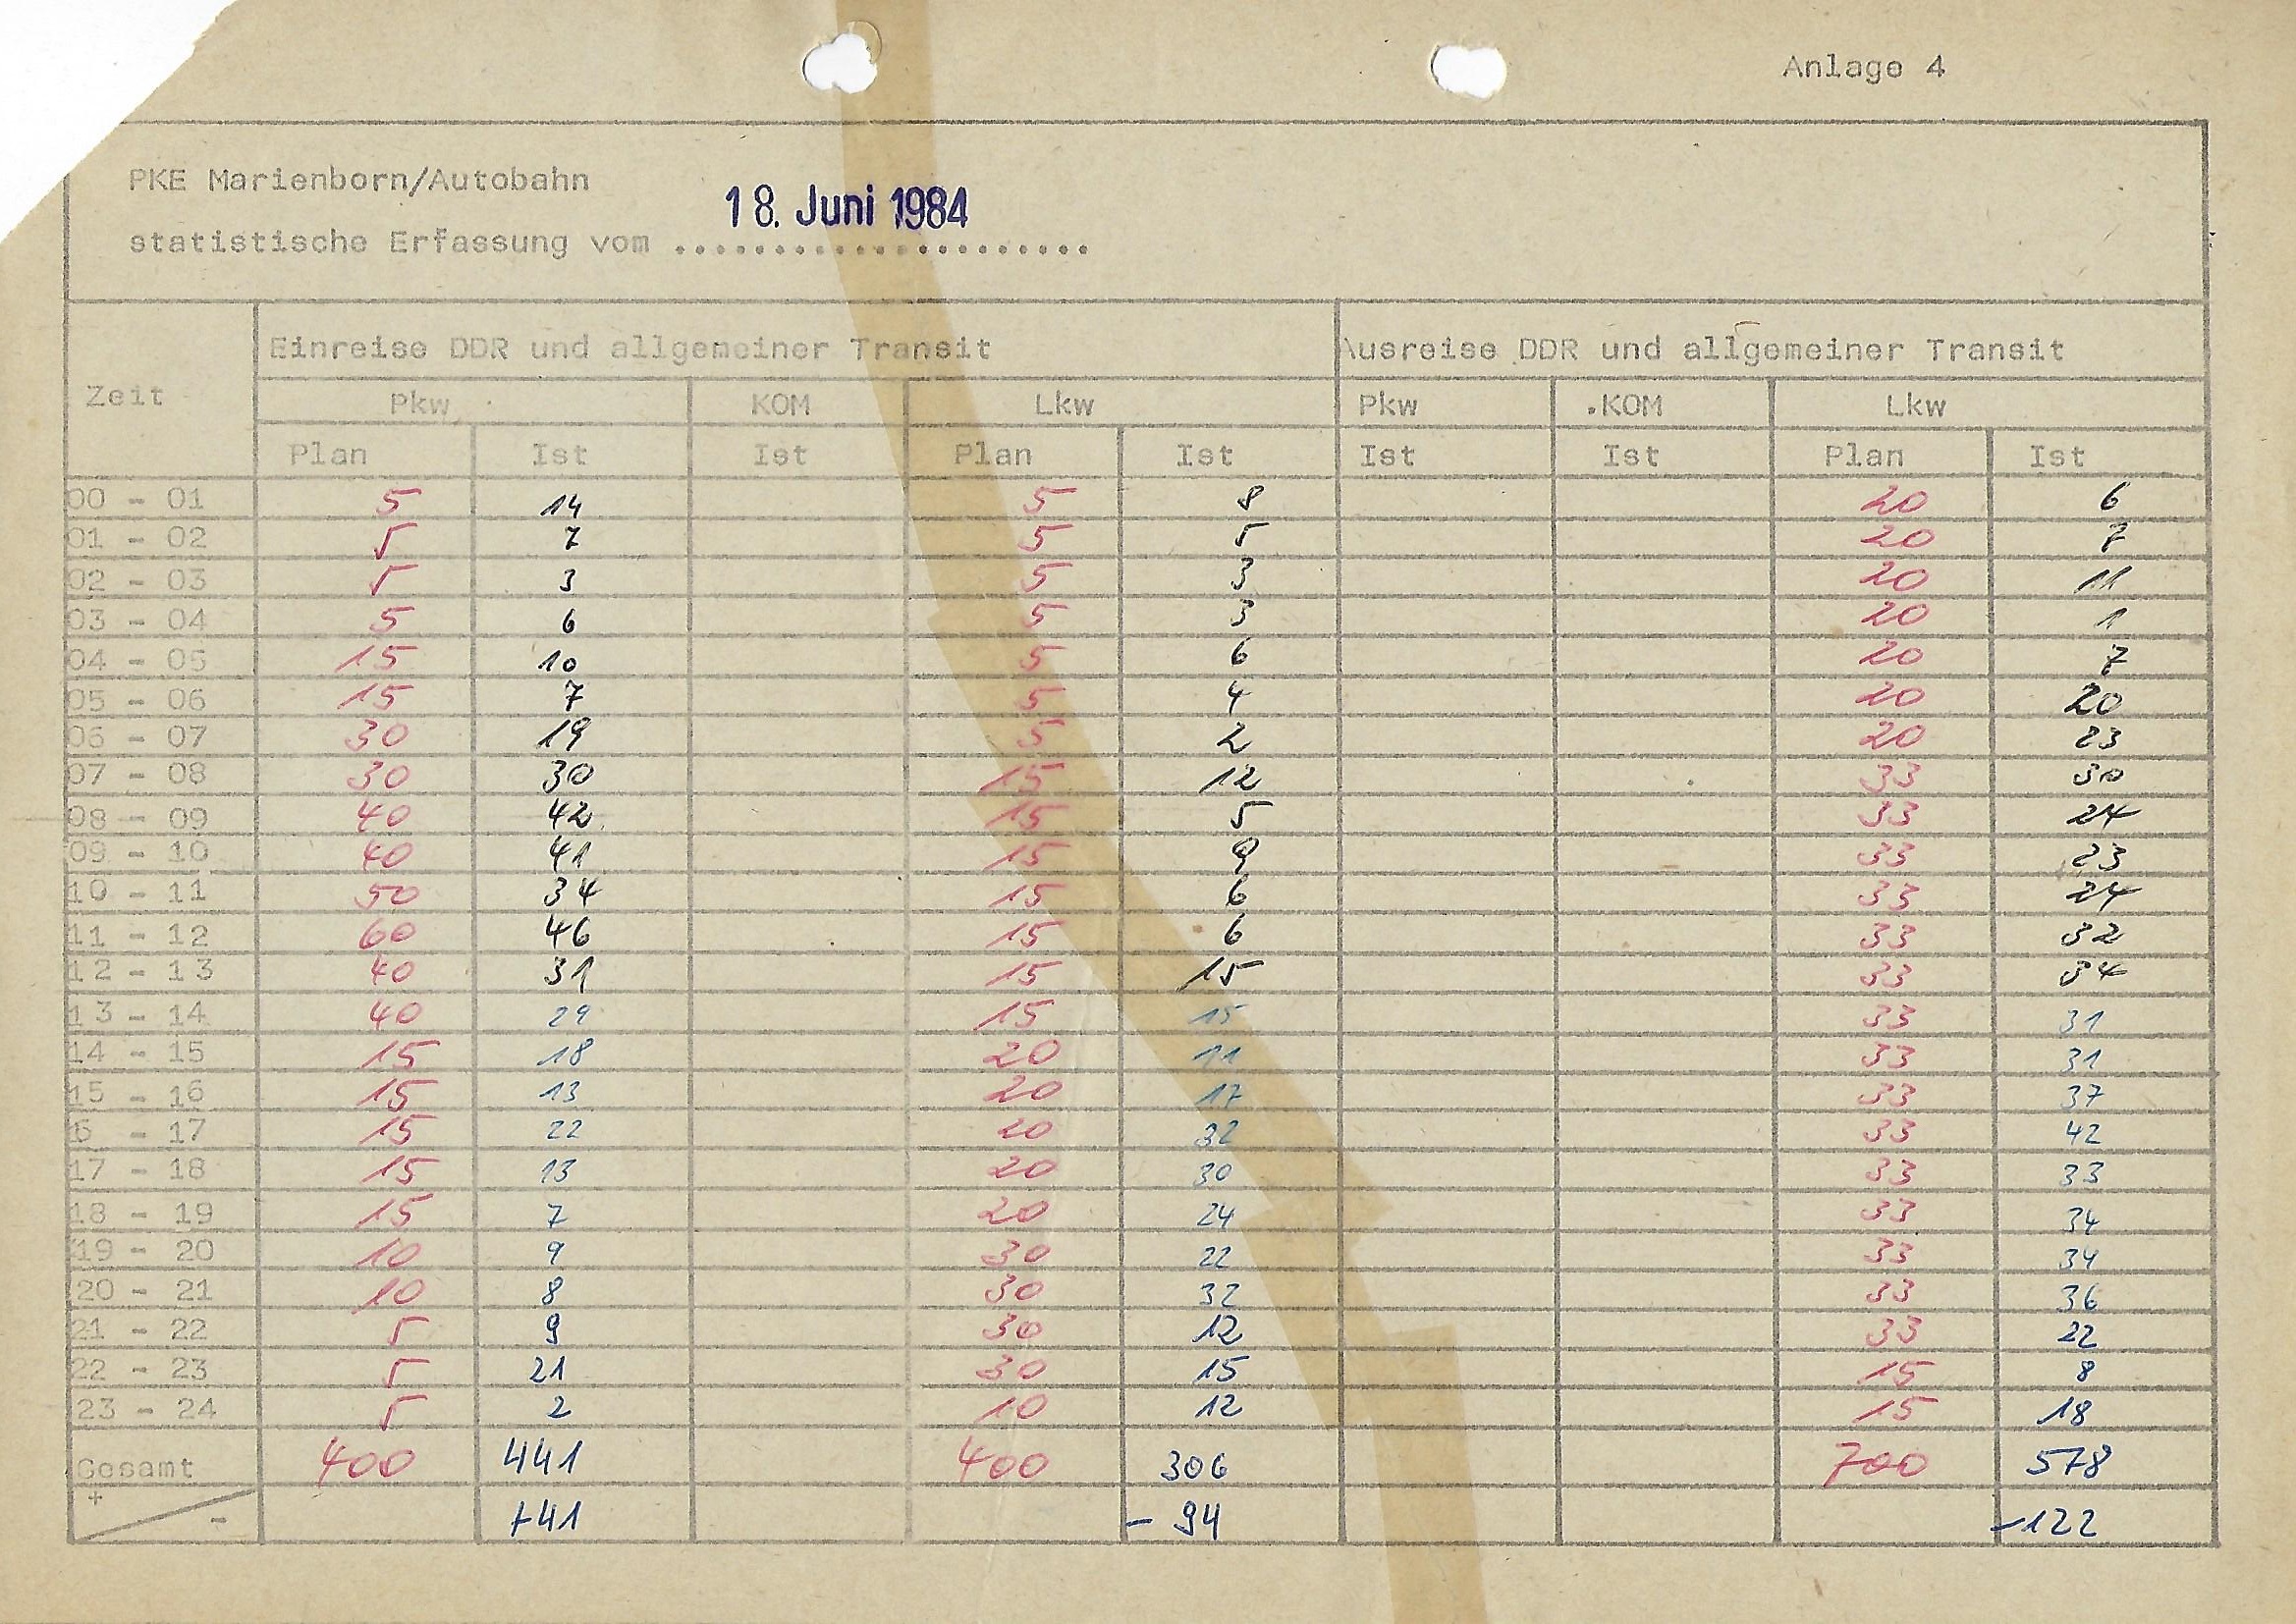 Anlage 4
PKE Marienborn/Autobahn
18. Juni 1984
statistische Erfassung vom .....................
Einreise DDR und allgemeiner Transit Ausreise DDR und allgemeiner Transit
Zeit
Pkw KOM Lkw Pkw .KOM Lkw
Plan Ist Ist Plan Ist Ist Ist Plan Ist
00 - 01 5 14 5 8 20 6
01 - 02 5 7 5 5 20 7
02 - 03 5 3 5 3 20 11
03 - 04 5 6 5 3 20 1
04 - 05 15 10 5 6 20 7
05 - 06 15 7 5 4 20 20
06 - 07 30 19 5 2 20 23
07 - 08 30 30 15 12 33 30
08 - 09 40 42 15 5 33 24
09 - 10 40 41 15 9 33 23
10 - 11 50 34 15 6 33 24
11 - 12 60 46 15 6 33 32
12 - 13 40 31 15 15 33 34
13 - 14 40 29 15 15 33 31
14 - 15 15 18 20 11 33 31
15 - 16 15 13 20 17 33 37
16 - 17 15 22 20 32 33 42
17 - 18 15 13 20 30 33 33
18 - 19 15 7 20 24 33 34
19 - 20 10 9 30 22 33 34
20 - 21 10 8 30 32 33 36
21 - 22 5 9 30 12 33 22
22 - 23 5 21 30 15 15 8
23 - 24 5 2 10 12 15 18
Gesamt 400 441 400 306 700 578
+ - +41 - 94 -122